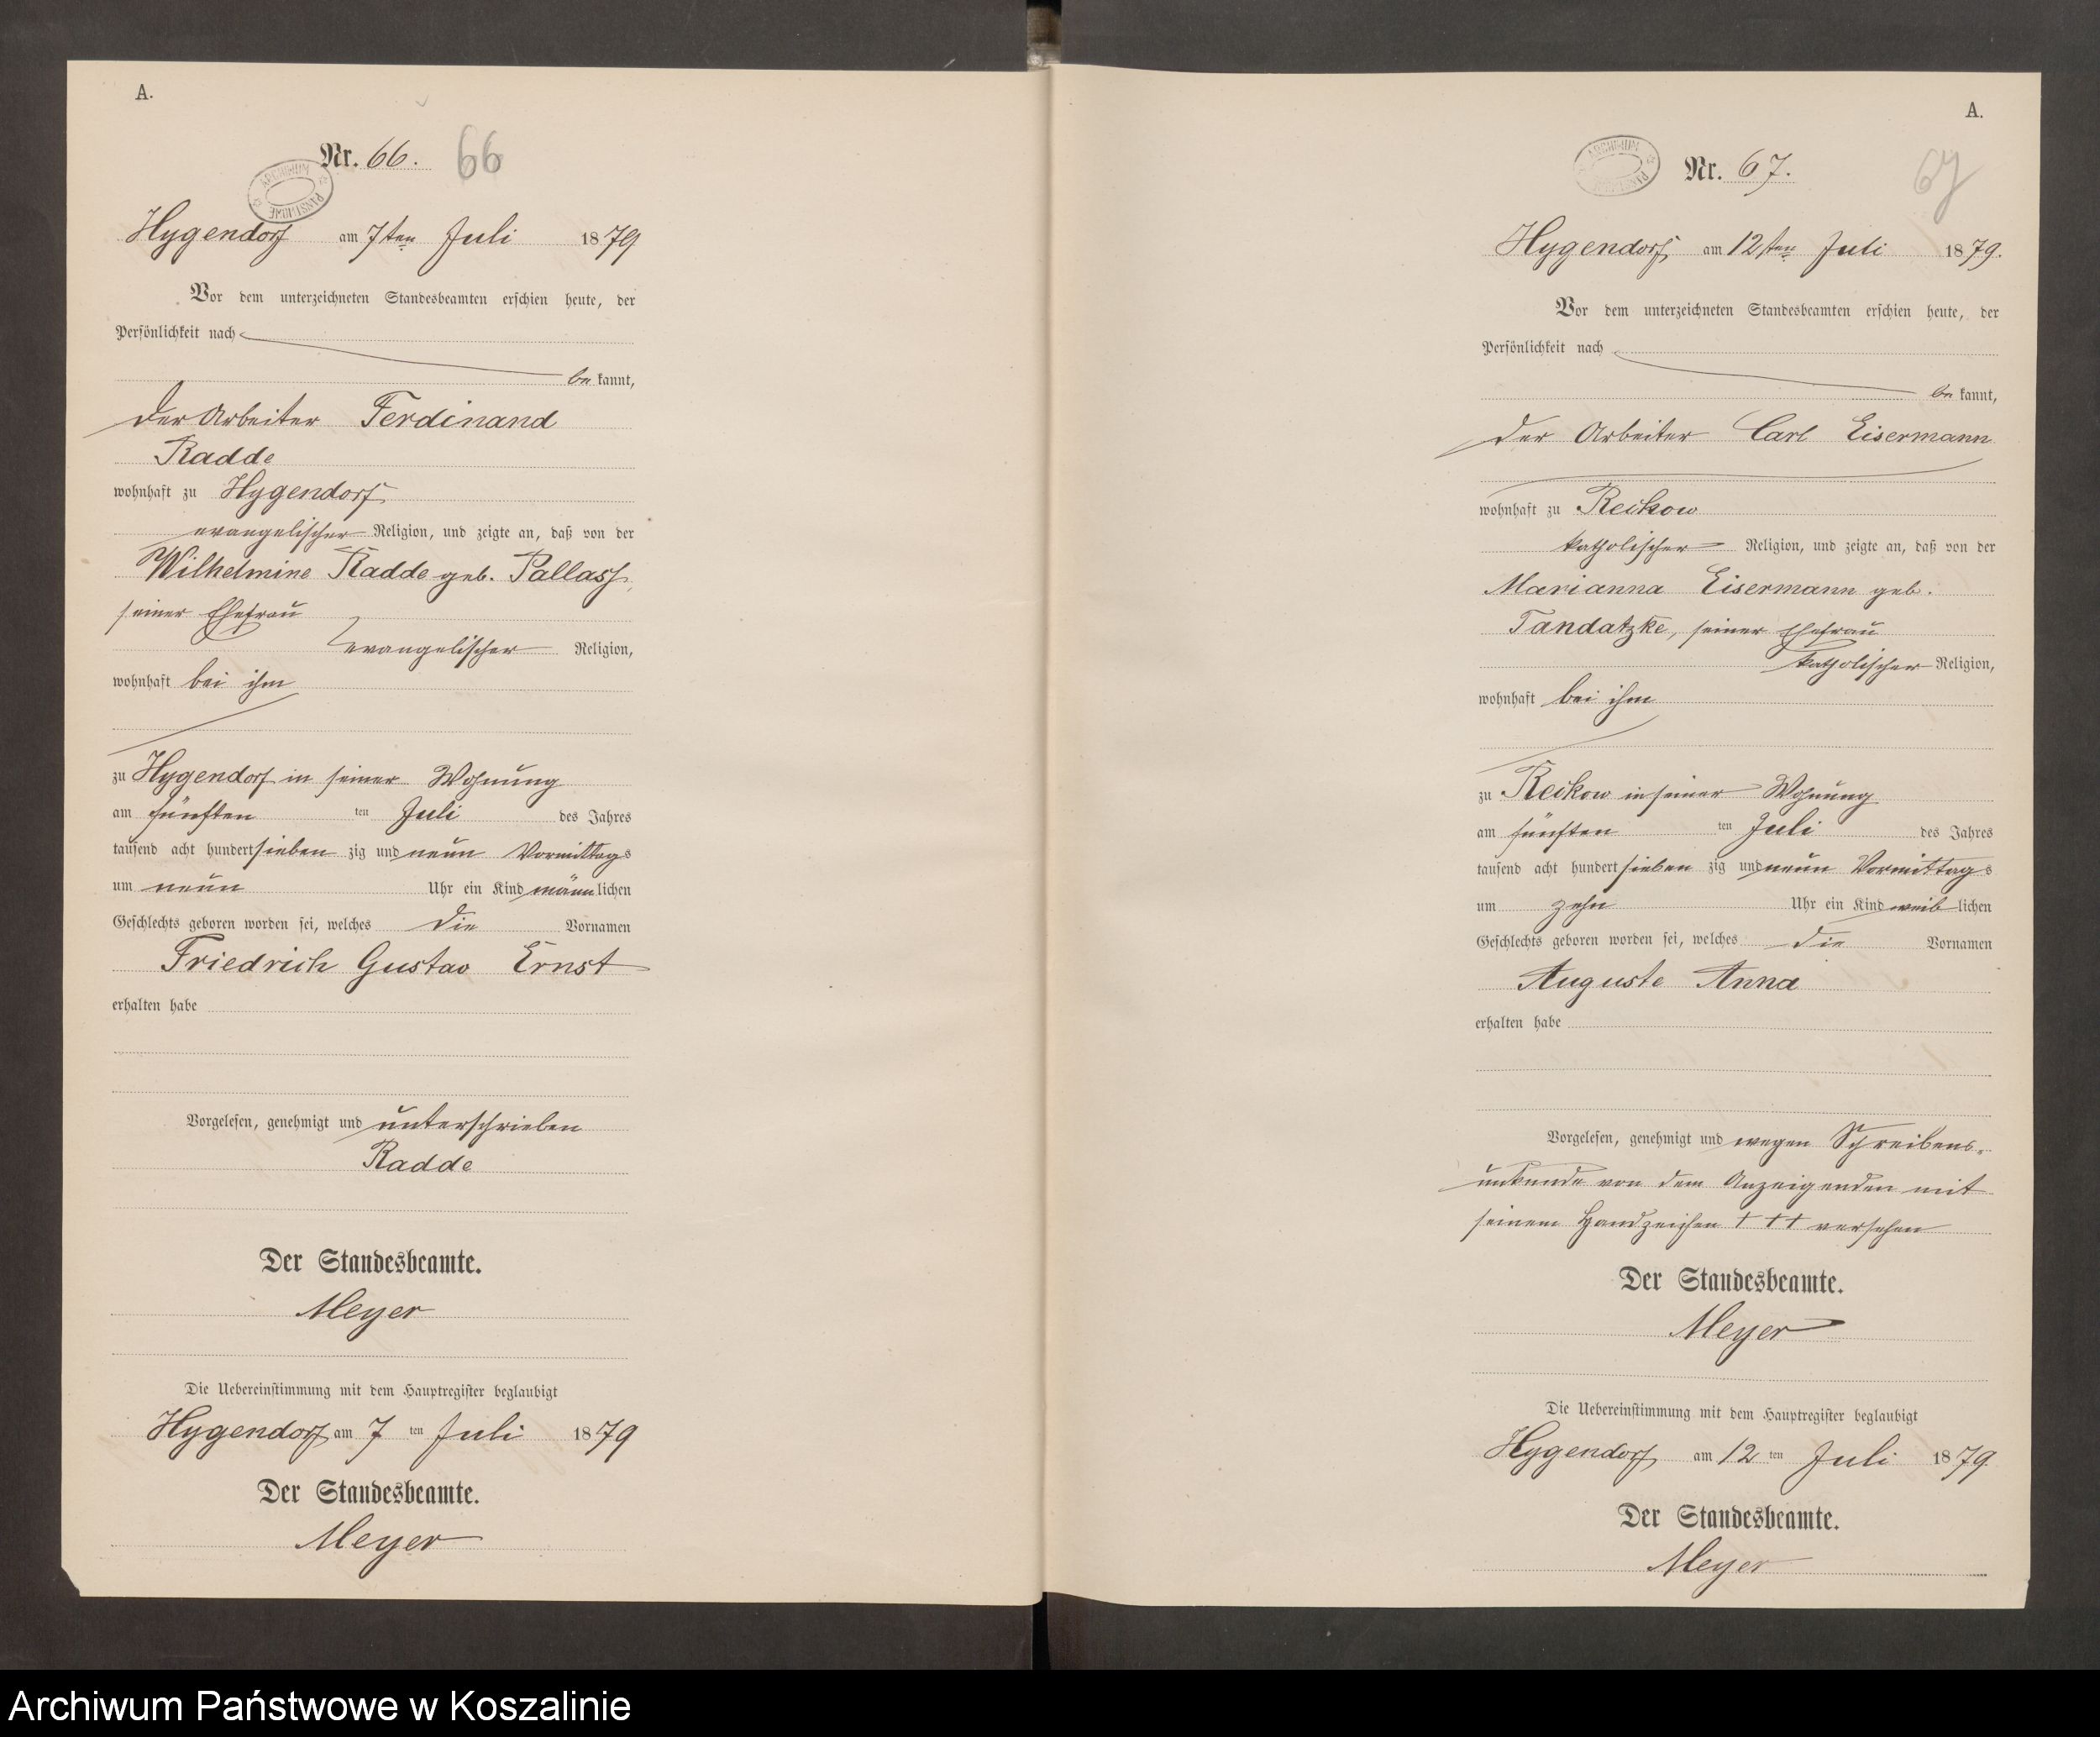 A.
Nr. 66. 66
ARCHIWUM PAŃSTWOWE
Hygendorf am 7ten Juli 1879
Vor dem unterzeichneten Standesbeamten erschien heute, der
Persönlichkeit nach
be kannt,
der Arbeiter Ferdinand
Radde
wohnhaft zu Hygendorf
evangelischer Religion, und zeigte an, daß von der
Wilhelmine Radde geb. Pallass,
seiner Ehefrau
evangelischer Religion,
wohnhaft bei ihm
zu Hygendorf in seiner Wohnung
am fünften ten Juli des Jahres
tausend acht hundert sieben zig und neun Vormittags
um neun Uhr ein Kind männ lichen
Geschlechts geboren worden sei, welches die Vornamen
Friedrich Gustav Ernst
erhalten habe
Vorgelesen, genehmigt und unterschrieben
Radde
Der Standesbeamte.
Meyer
Die Uebereinstimmung mit dem Hauptregister beglaubigt
Hygendorf am 7 ten Juli 1879
Der Standesbeamte.
Meyer
A.
ARCHIWUM PAŃSTWOWE
Nr. 67. 67
Hygendorf, am 12ten Juli 1879.
Vor dem unterzeichneten Standesbeamten erschien heute, der
Persönlichkeit nach
be kannt,
der Arbeiter Carl Eisermann
wohnhaft zu Reckow
katholischer Religion, und zeigte an, daß von der
Marianna Eisermann geb.
Tandatzke, seiner Ehefrau
katholischer Religion,
wohnhaft bei ihm
zu Reckow in seiner Wohnung
am fünften ten Juli des Jahres
tausend acht hundert sieben zig und neun Vormittags
um zehn Uhr ein Kind weib lichen
Geschlechts geboren worden sei, welches die Vornamen
Auguste Anna
erhalten habe
Vorgelesen, genehmigt und wegen Schreibens-
unkunde von dem Anzeigenden mit
seinem Handzeichen +++ versehen
Der Standesbeamte.
Meyer
Die Uebereinstimmung mit dem Hauptregister beglaubigt
Hygendorf, am 12 ten Juli 1879
Der Standesbeamte.
Meyer
Archiwum Państwowe w Koszalinie